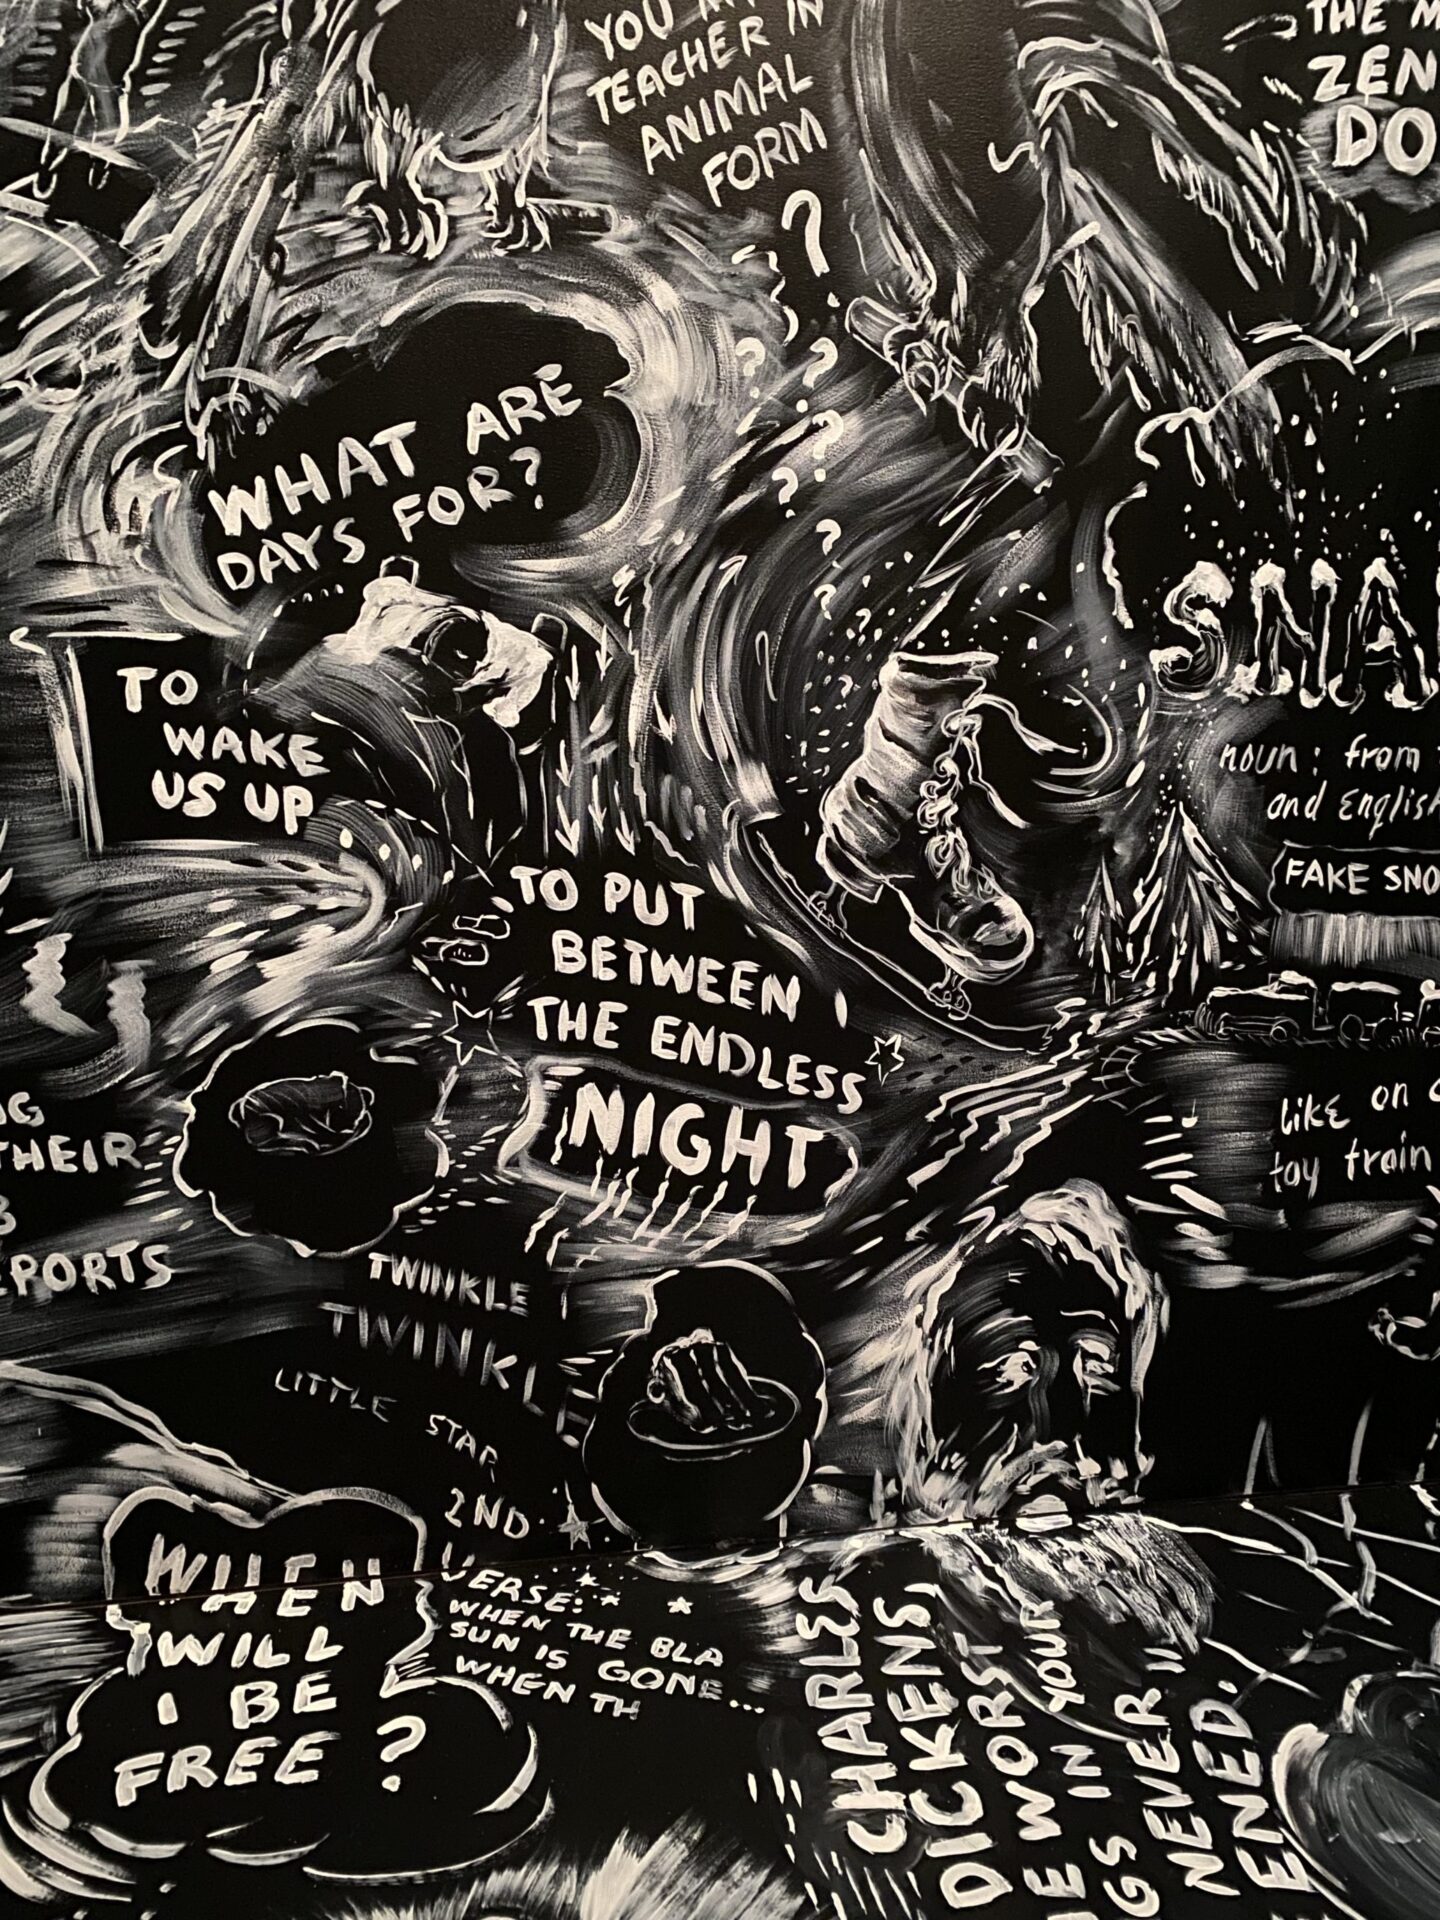 YOU MY
TEACHER IN
ANIMAL
FORM
?
THE M
ZEN
DO
WHAT ARE
DAYS FOR?
TO
WAKE
US UP
TO PUT
BETWEEN
THE ENDLESS
NIGHT
SNA
noun: from
and English
FAKE SNO
like on a
toy train
G
THEIR
PORTS
TWINKLE
TWINKLE
LITTLE STAR
2ND
VERSE:
WHEN THE BLA
SUN IS GONE...
WHEN TH
WHEN
WILL
I BE
FREE?
CHARLES
DICKENS,
E WORST
E IN YOUR
GS NEVER
NED.